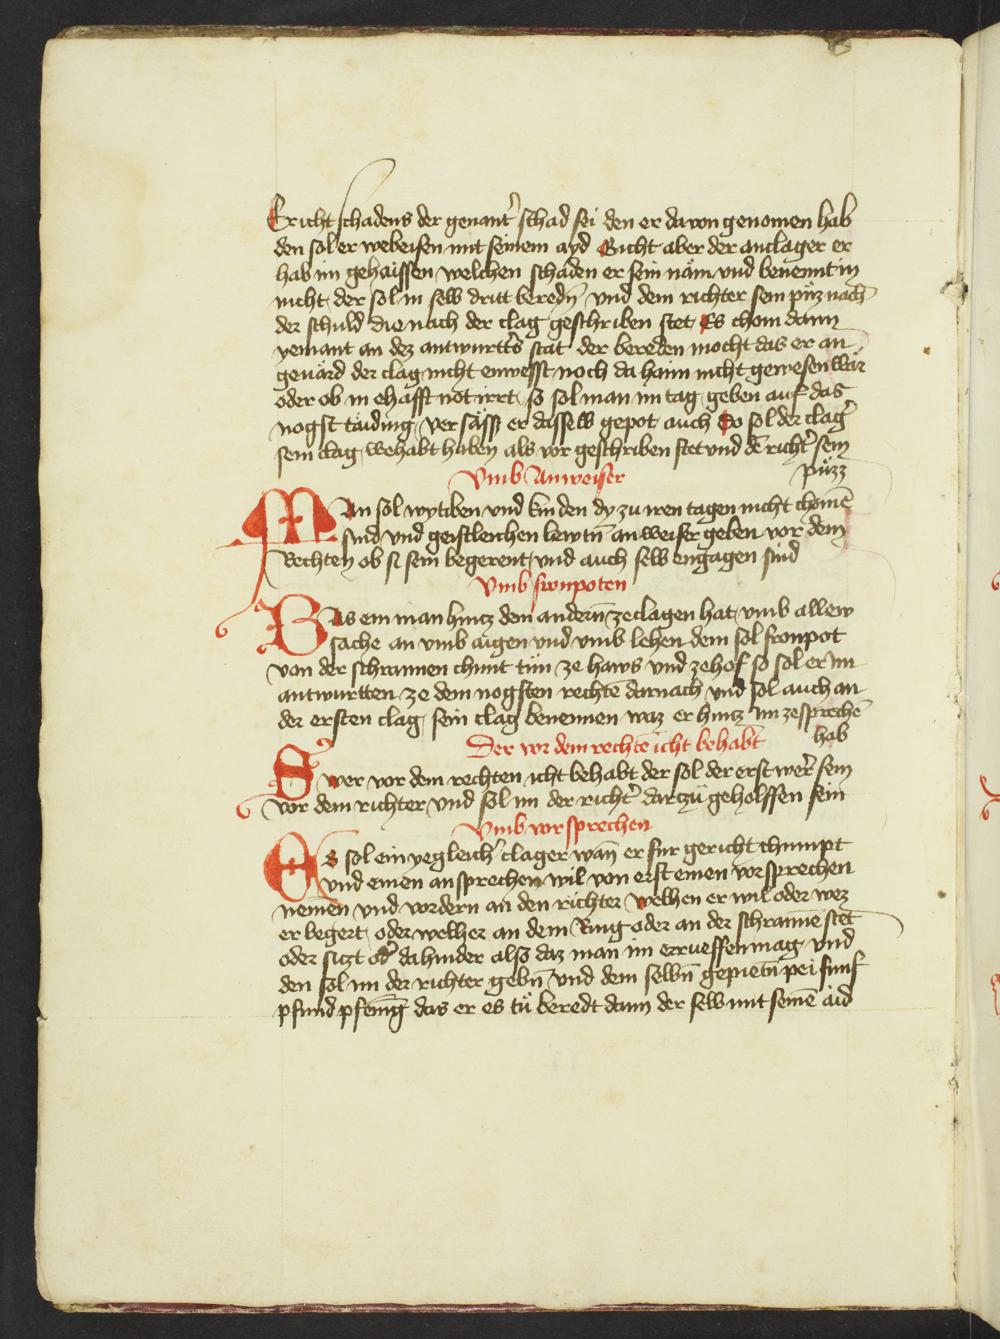 Er icht schadens der genant' schad sei den er davon genomen hab
den sol er webeisen mit seinem ayd Gicht aber der anclager er
hab im gehaissen welchen schaden er sein näm und benennt in
nicht der sol in selb dritt beredn̄ und dem richter sein püz nach
der schuld die nach der clag geschriben stet Es chom dann
yemant an dez antwurtt's stat der bereden mocht das er an
geuärd der clag nicht enwesst noch da haim nicht gewesen wär
oder ob in ehafft not irrt so sol man im tag geben auf das
nogst täiding versäss er dasselb gepot auch So sol der clag'
sein clag wehabt haben als vor geschriben stet und dē richt' sein
püzz
Vmb Anweiser
Man sol wytiben und kinden dy zu iren tagen nicht chomē
sind und geistleichen lewtn̄ anweiser geben vor dem
Rechten ob si sein begerent und auch selb engagen sind
Vmb fronpoten
Was ein man hincz dem andern̄ ze clagen hat umb allew
sache an umb aigen und umb lehen dem sol fronpot
von der schrannen chunt tün ze haws und ze hof so sol er im
antwurtten ze dem nogsten rechtē darnach und sol auch an
der ersten clag sein clag benennen waz er hincz im zesprechē
hab
Der vor dem rechtē icht behabt
Swer vor dem rechten icht behabt der sol der erst wer' sein
vor dem richter und sol im der richt' darczü geholffen sein
Vmb vorsprechen
Es sol ein yegleich' clager wan̄ er fur gericht chumpt
und einen ansprechen wil von erst einen vorsprechen
nemen und vordern an den richter welhen er wil oder wez
er begert oder welher an dem Ring oder an der schrannē stet
oder siczt od' dahinder also daz man im erruessen mag und
den sol im der richter gebn̄ und dem selbn̄ gepietn̄ pei funf
pfund pfenīg das er es tü beredt dann der selb mit seinē äid